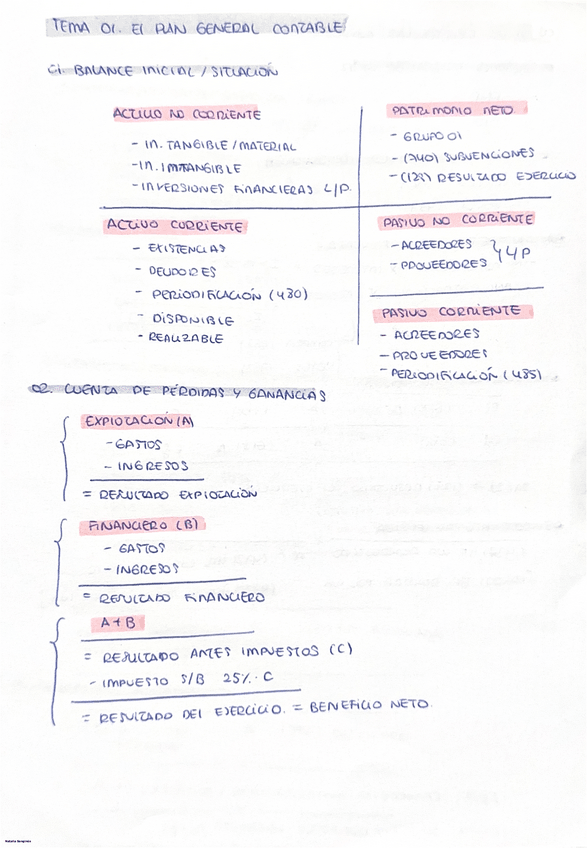 TEMA 01. El PLAN GENERAL CONTABLE
01. BALANCE INICIAL / SITUACIÓN
ACTIVO NO CORRIENTE
- IN. TANGIBLE / MATERIAL
- IN. IMTANGIBLE
- INVERSIONES FINANCIERAS L/P.
PATRIMONIO NETO
- GRUPO 01
- (740) SUBVENCIONES
- (129) RESULTADO EJERCICIO
ACTIVO CORRIENTE
- EXISTENCIAS
- DEUDORES
- PERIODIFICACIÓN (480)
- DISPONIBLE
- REALIZABLE
PASIVO NO CORRIENTE
- ACREEDORES
- PROVEEDORES
PASIVO CORRIENTE
- ACREEDORES
- PROVEEDORES
- PERIODIFICACIÓN (485)
02. CUENTA DE PÉRDIDAS Y GANANCIAS
EXPLOTACIÓN (A)
- GASTOS
- INGRESOS
= RESULTADO EXPLOTACIÓN
FINANCIERO (B)
- GASTOS
- INGRESOS
= RESULTADO FINANCIERO
A + B
= RESULTADO ANTES IMPUESTOS (C)
- IMPUESTO S/B 25%. C
= RESULTADO DEL EJERCICIO. = BENEFICIO NETO.